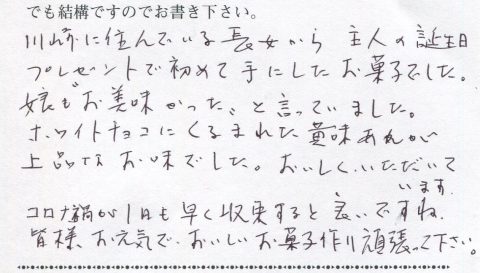 でも結構ですのでお書き下さい。
川崎に住んでいる長女から 主人の誕生日
プレゼントで初めて手にしたお菓子でした。
娘も"お美味かった"と言っていました。
ホワイトチョコにくるまれた黄味あんが
上品なお味でした。おいしくいただいて
います。
コロナ禍が1日も早く収束すると良いですね。
皆様、お元気で、おいしいお菓子作り頑張って下さい。